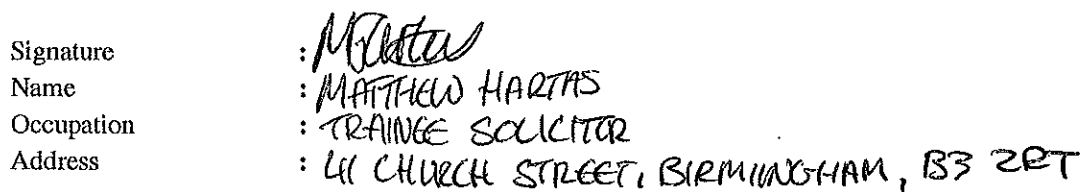 Signature :
Name : MATTHEW HARTAS
Occupation : TRAINEE SOLICITOR
Address : 41 CHURCH STREET, BIRMINGHAM, B3 2RT